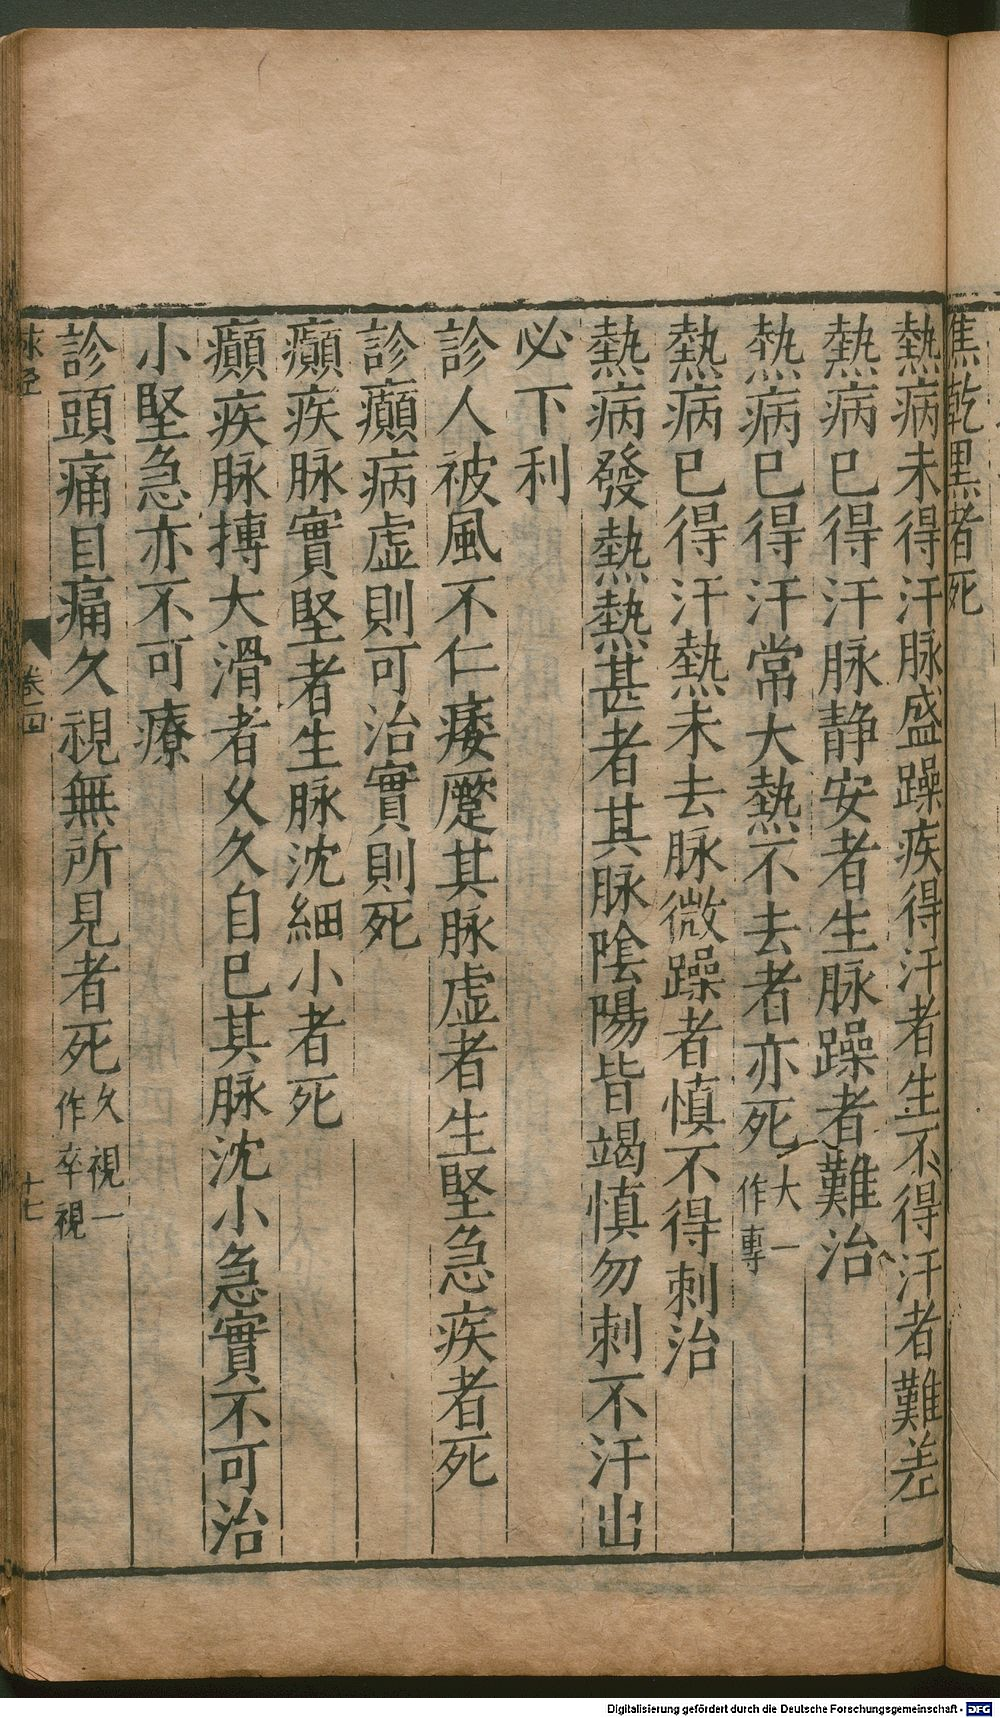 焦乾黑者死
熱病未得汗脉盛躁疾得汗者生不得汗者難差
熱病已得汗脉静安者生脉躁者難治
熱病已得汗常大熱不去者亦死大一作專
熱病已得汗熱未去脉微躁者慎不得刺治
熱病發熱熱甚者其脉陰陽皆竭慎勿刺不汗出
必下利
診人被風不仁痿蹷其脉虚者生堅急疾者死
診癲病虚則可治實則死
癲疾脉實堅者生脉沈細小者死
癲疾脉摶大滑者久久自已其脉沈小急實不可治
小堅急亦不可療
診頭痛目痛久視無所見者死久視一作卒視
脉經 卷四 十七
Digitalisierung gefördert durch die Deutsche Forschungsgemeinschaft - DFG